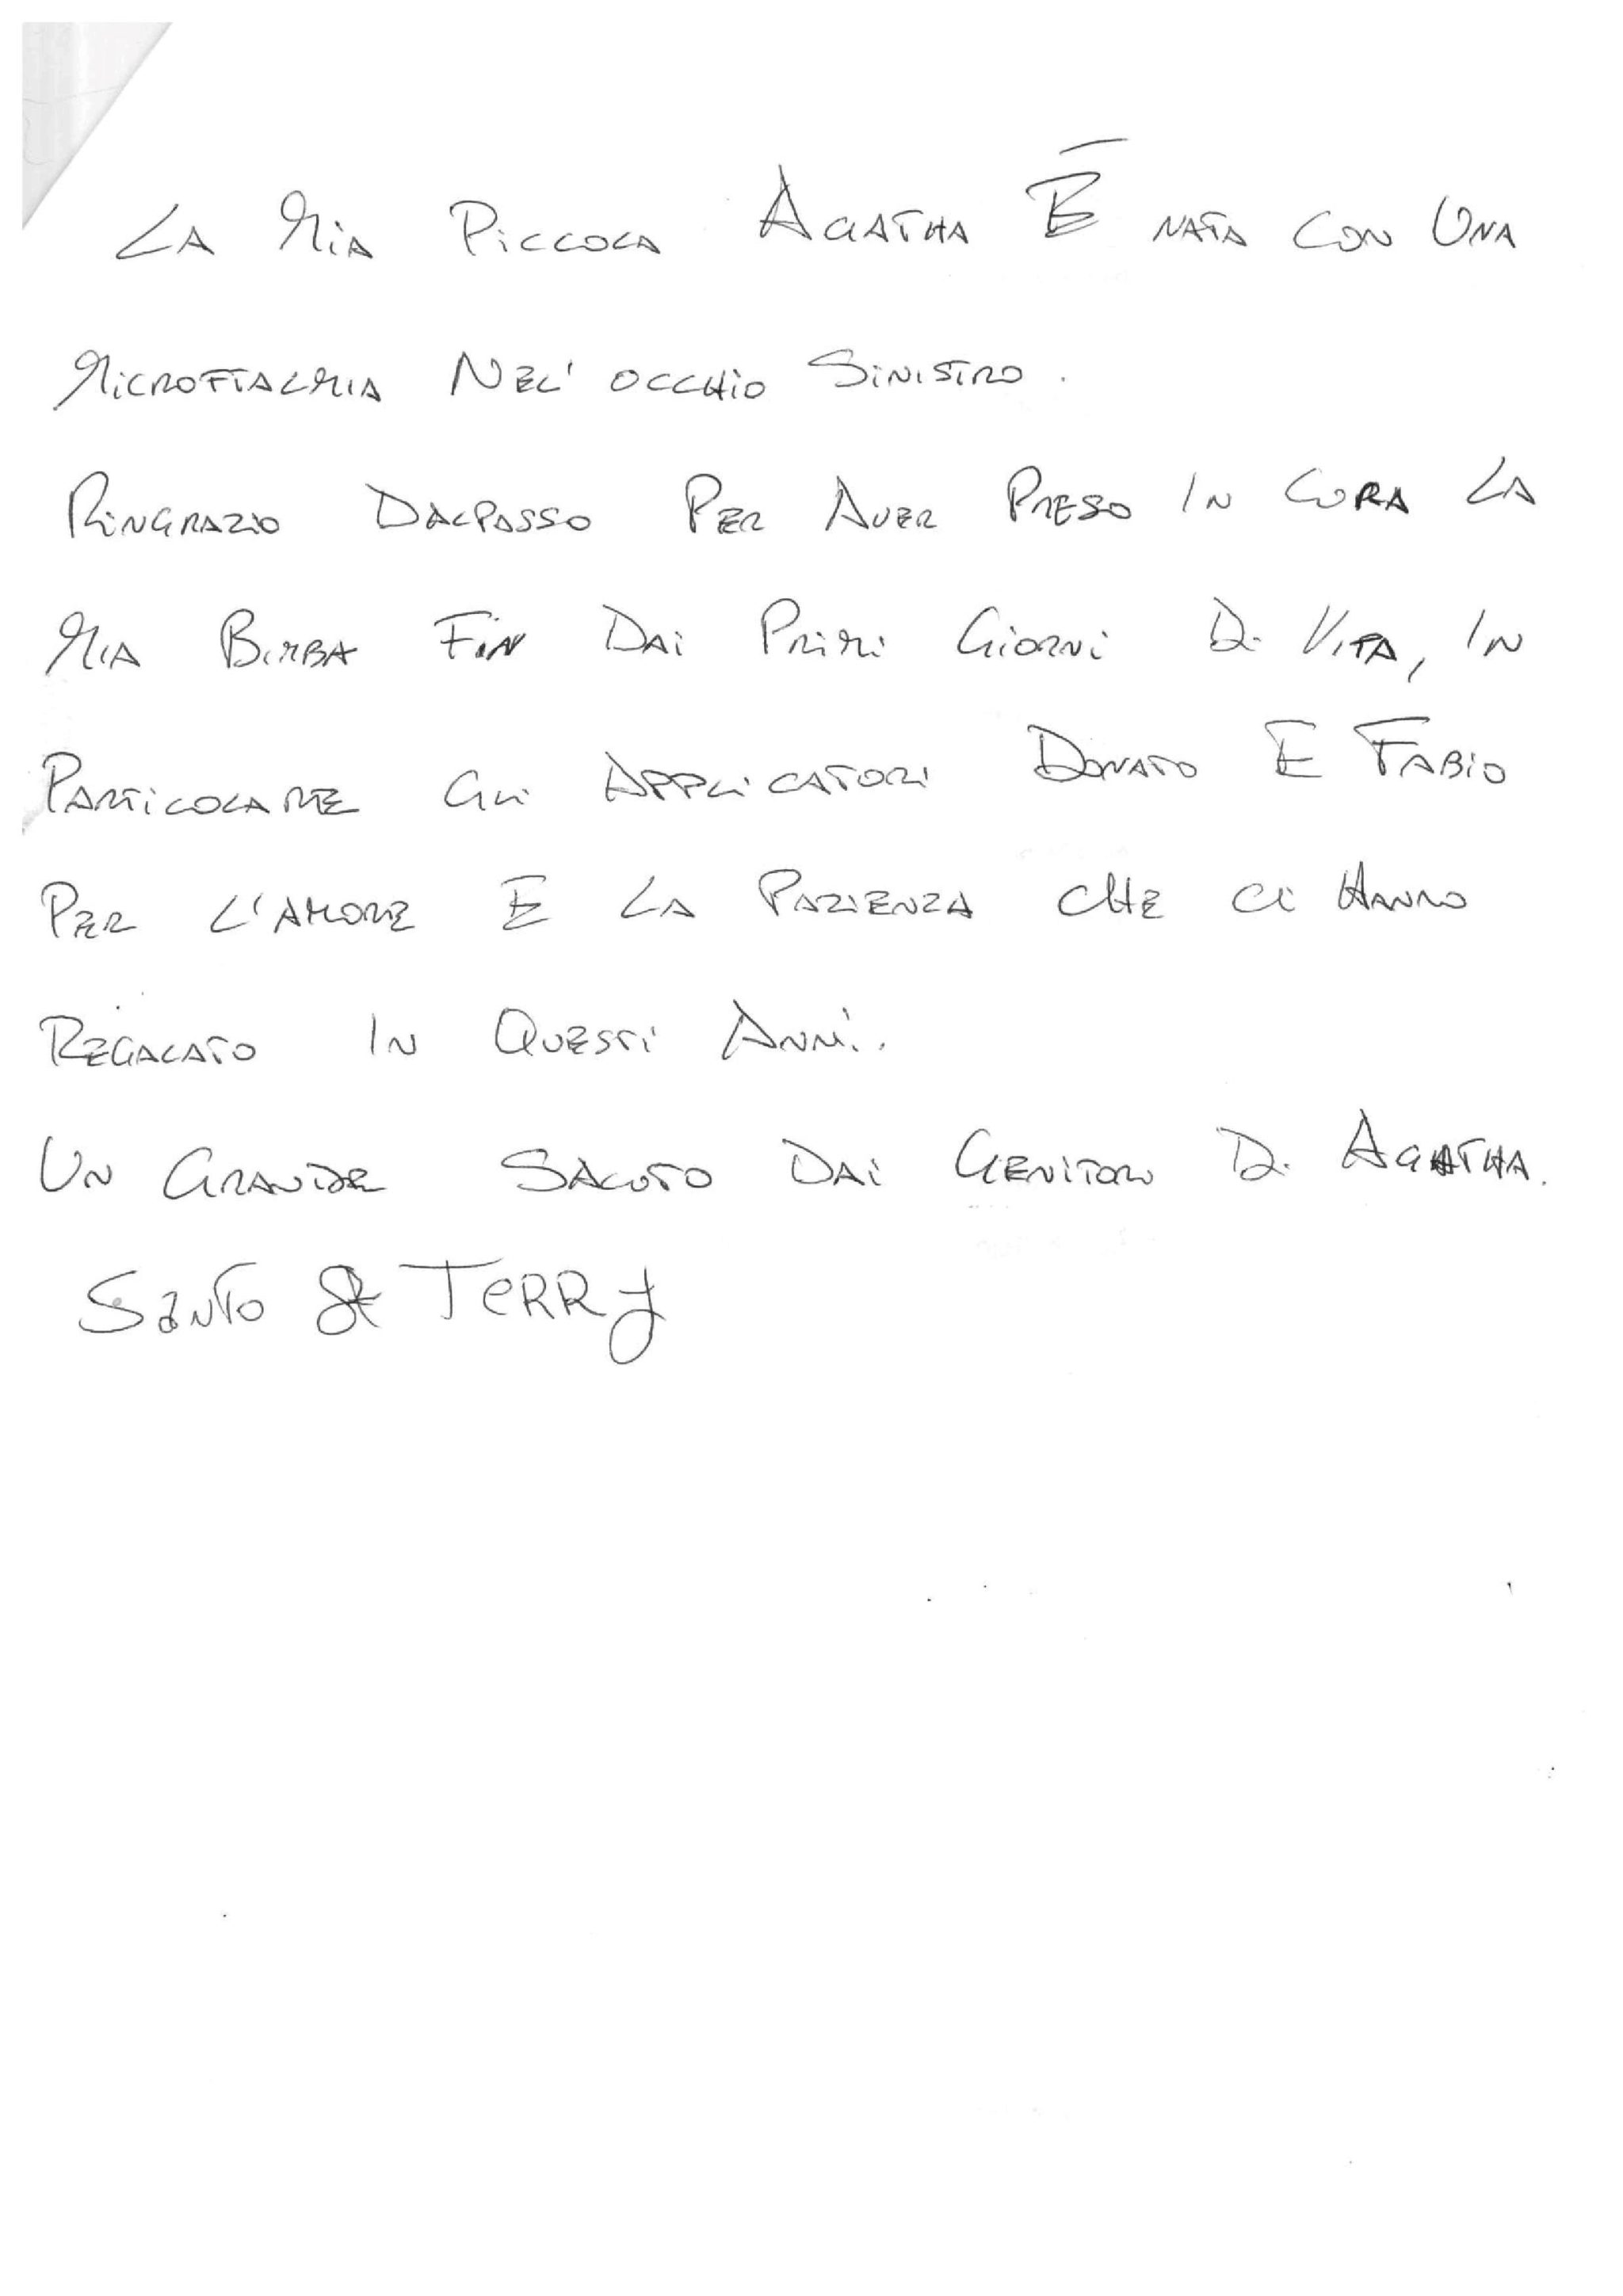 LA MIA PICCOLA AGATHA È NATA CON UNA
MICROFTALMIA NEL' OCCHIO SINISTRO.
RINGRAZIO DALPASSO PER AVER PRESO IN CURA LA
MIA BIMBA FIN DAI PRIMI GIORNI DI VITA, IN
PARTICOLARE GLI APPLICATORI DONATO E FABIO
PER L'AMORE E LA PAZIENZA CHE CI HANNO
REGALATO IN QUESTI ANNI.
UN GRANDE SALUTO DAI GENITORI DI AGATHA.
SANTO & TERRY